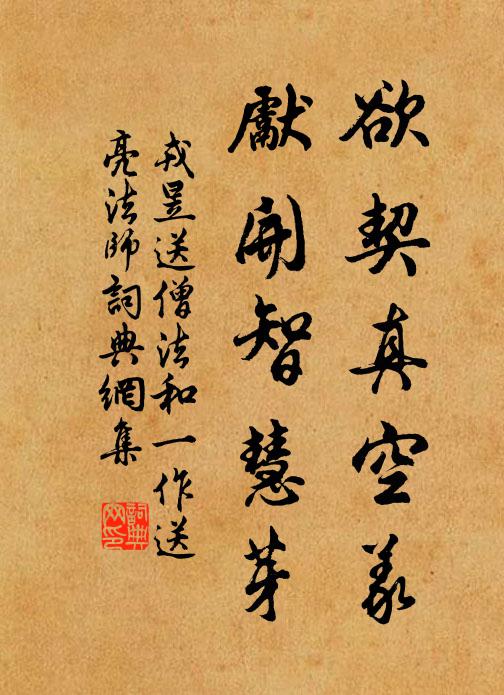 欲契真空義
獻開智慧芽
戎昱送僧法和一作送
亮法師詞典網集
詞典
网印